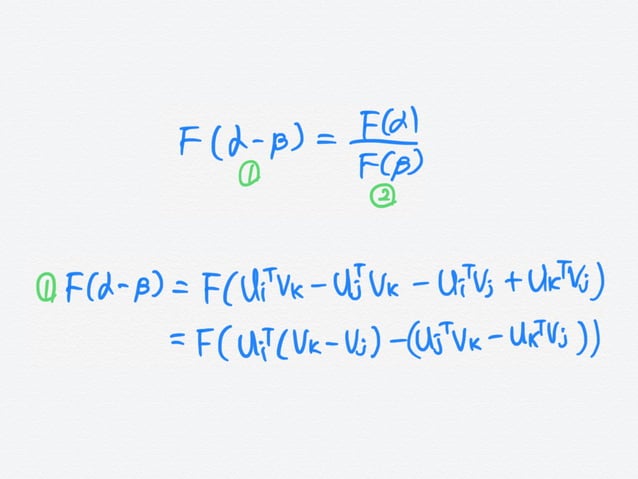 F(α-β) = F(α)/F(β)
① ②
① F(α-β) = F(uᵢᵀvₖ - uⱼᵀvₖ - uᵢᵀvⱼ + uₖᵀvⱼ)
= F(uᵢᵀ(vₖ - vⱼ) - (uⱼᵀvₖ - uₖᵀvⱼ))